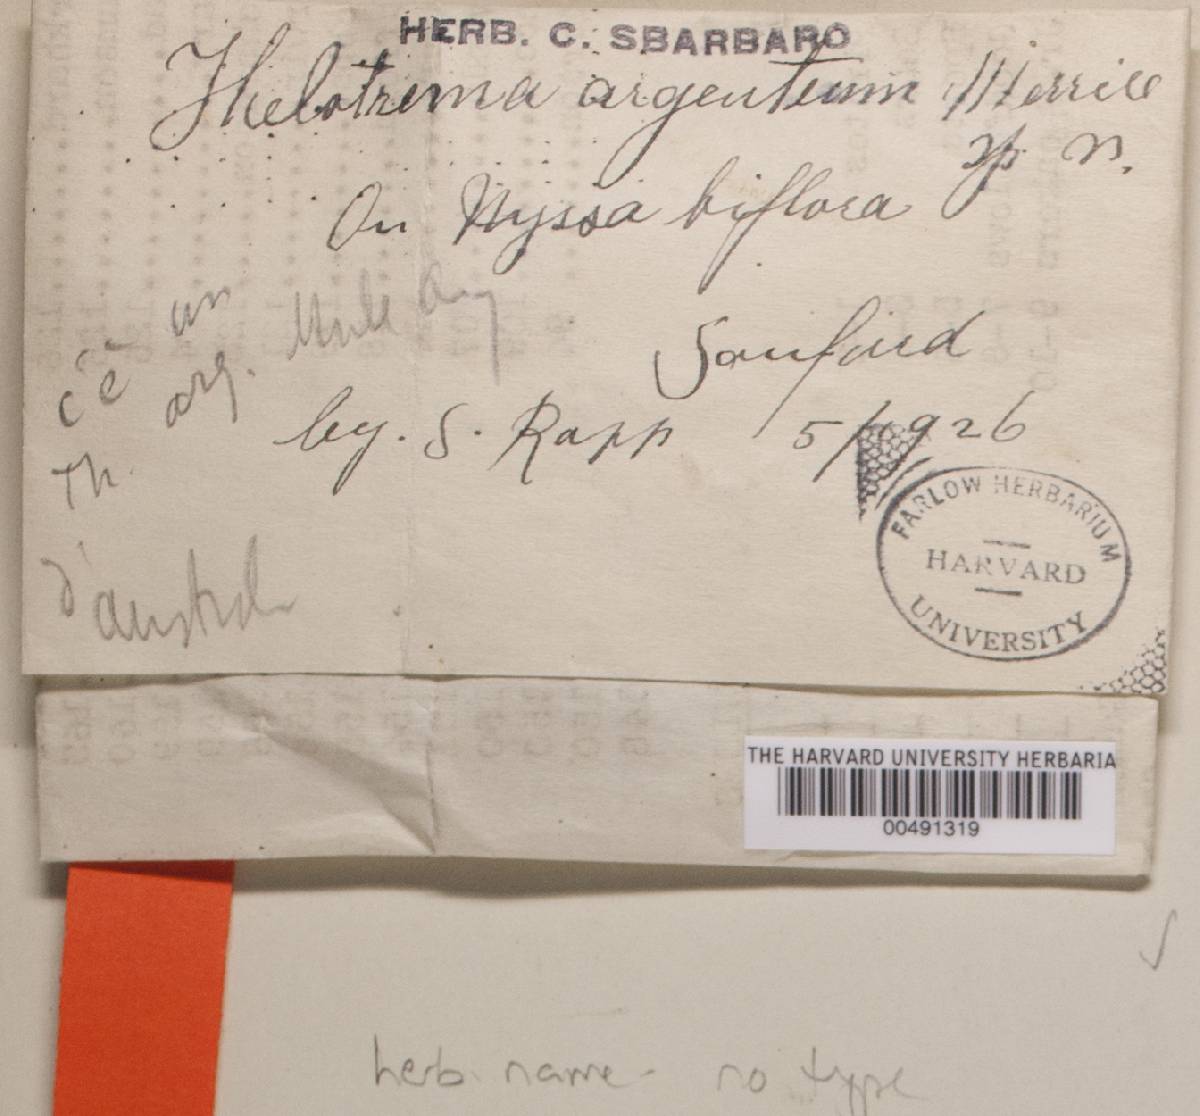 HERB. C. SBARBARO
Thelotrema argenteum Merrill
sp n.
On Nyssa biflora
c'è un
Th. arg. Mull Arg
d'austral
Sanford
by. S. Rapp 5/1926
FARLOW HERBARIUM
HARVARD
UNIVERSITY
THE HARVARD UNIVERSITY HERBARIA
00491319
herb. name - no type